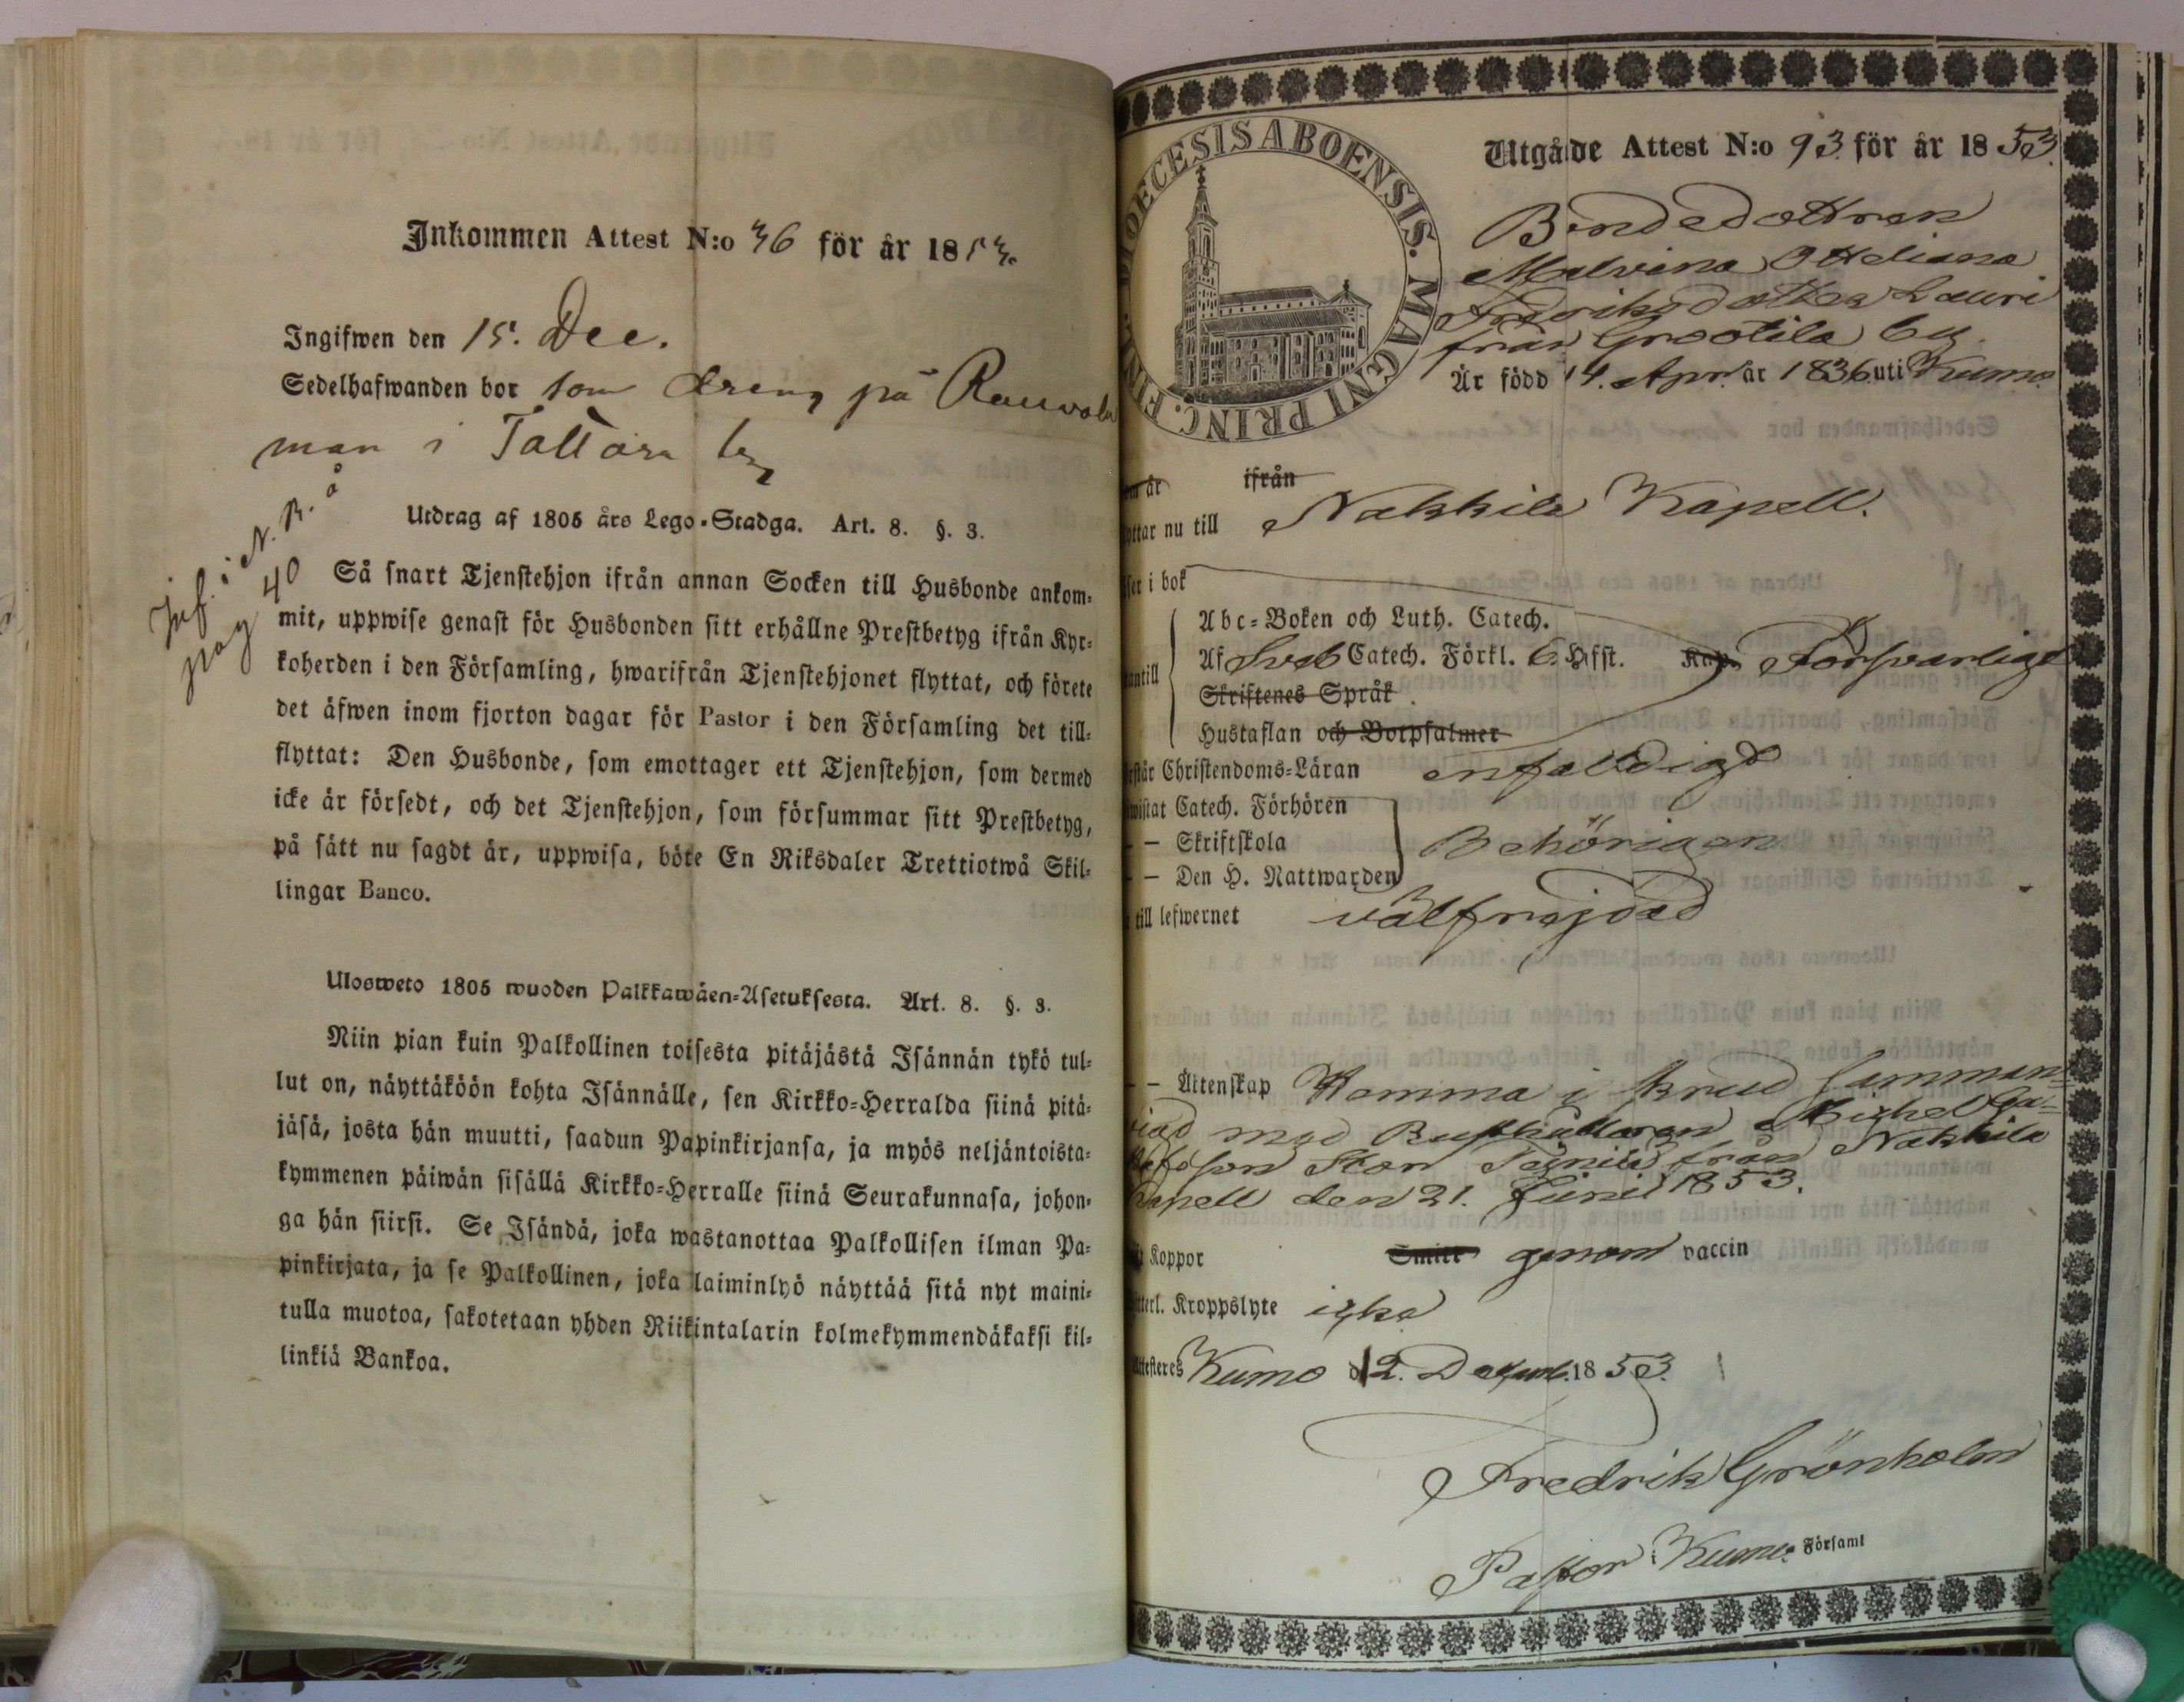 Inkommen Attest N:o 36 för år 1853.
Ingifwen den 15. Dec.
Sedelhafwanden bor som dreng på Rauvola
man i Tattara by
Inf. i N. B. å
pag 40
Utdrag af 1805 års Lego-Stadga. Art. 8. §. 3.
Så snart Tjenstehjon ifrån annan Socken till Husbonde ankom-
mit, uppwise genast för Husbonden sitt erhållne Prestbetyg ifrån Kyr-
koherden i den Församling, hwarifrån Tjenstehjonet flyttat, och förete
det äfwen inom fjorton dagar för Pastor i den Församling det till-
flyttat: Den Husbonde, som emottager ett Tjenstehjon, som dermed
icke är försedt, och det Tjenstehjon, som försummar sitt Prestbetyg,
på sätt nu sagdt är, uppwisa, böte En Riksdaler Trettiotwå Skil-
lingar Banco.
Ulosweto 1805 wuoden Palkkawäen-Asetuksesta. Art. 8. §. 3.
Niin pian kuin Palkollinen toisesta pitäjästä Isännän tykö tul-
lut on, näyttäköön kohta Isännälle, sen Kirkko-Herralda siinä pitä-
jäsä, josta hän muutti, saadun Papinkirjansa, ja myös neljäntoista-
kymmenen päiwän sisällä Kirkko-Herralle siinä Seurakunnasa, johon-
ga hän siirsi. Se Isändä, joka wastanottaa Palkollisen ilman Pa-
pinkirjata, ja se Palkollinen, joka laiminlyö näyttää sitä nyt maini-
tulla muotoa, sakotetaan yhden Riikintalarin kolmekymmendäkaksi kil-
linkiä Bankoa.
DIOECESIS ABOENSIS. MAGNI PRINC. FINL.
Utgåde Attest N:o 93 för år 1853.
Bondedottren
Malvina Ottiliana
Fredriksdotter Lauri
från Grootila by
Är född 14. Apr. år 1836 uti Kumo
om är ifrån
yttar nu till Nakkila Kapell.
ser i bok
Abc-Boken och Luth. Catech.
antill Af Sveb Catech. Förkl. 6 Hfst. Kap. Försvarligt
Skriftenes Språk
Hustaflan och Botpsalmer
rstår Christendoms-Läran enfaldigt
wistat Catech. Förhören
— Skriftskola Behörigen
— Den H. Nattwarden
till lefwernet välfrejdad
— Äktenskap Homma i brud samman
vigd med Bysksuttaren Michel
son Stor från Nakkila
Kapell den 21. Junii 1853.
Koppor Smitt genom vaccin
tterl. Kroppslyte icke
ttesteres Kumo d 12. Decemb. 1853.
Fredrik Grönholm
Pastor i Kumo Församl